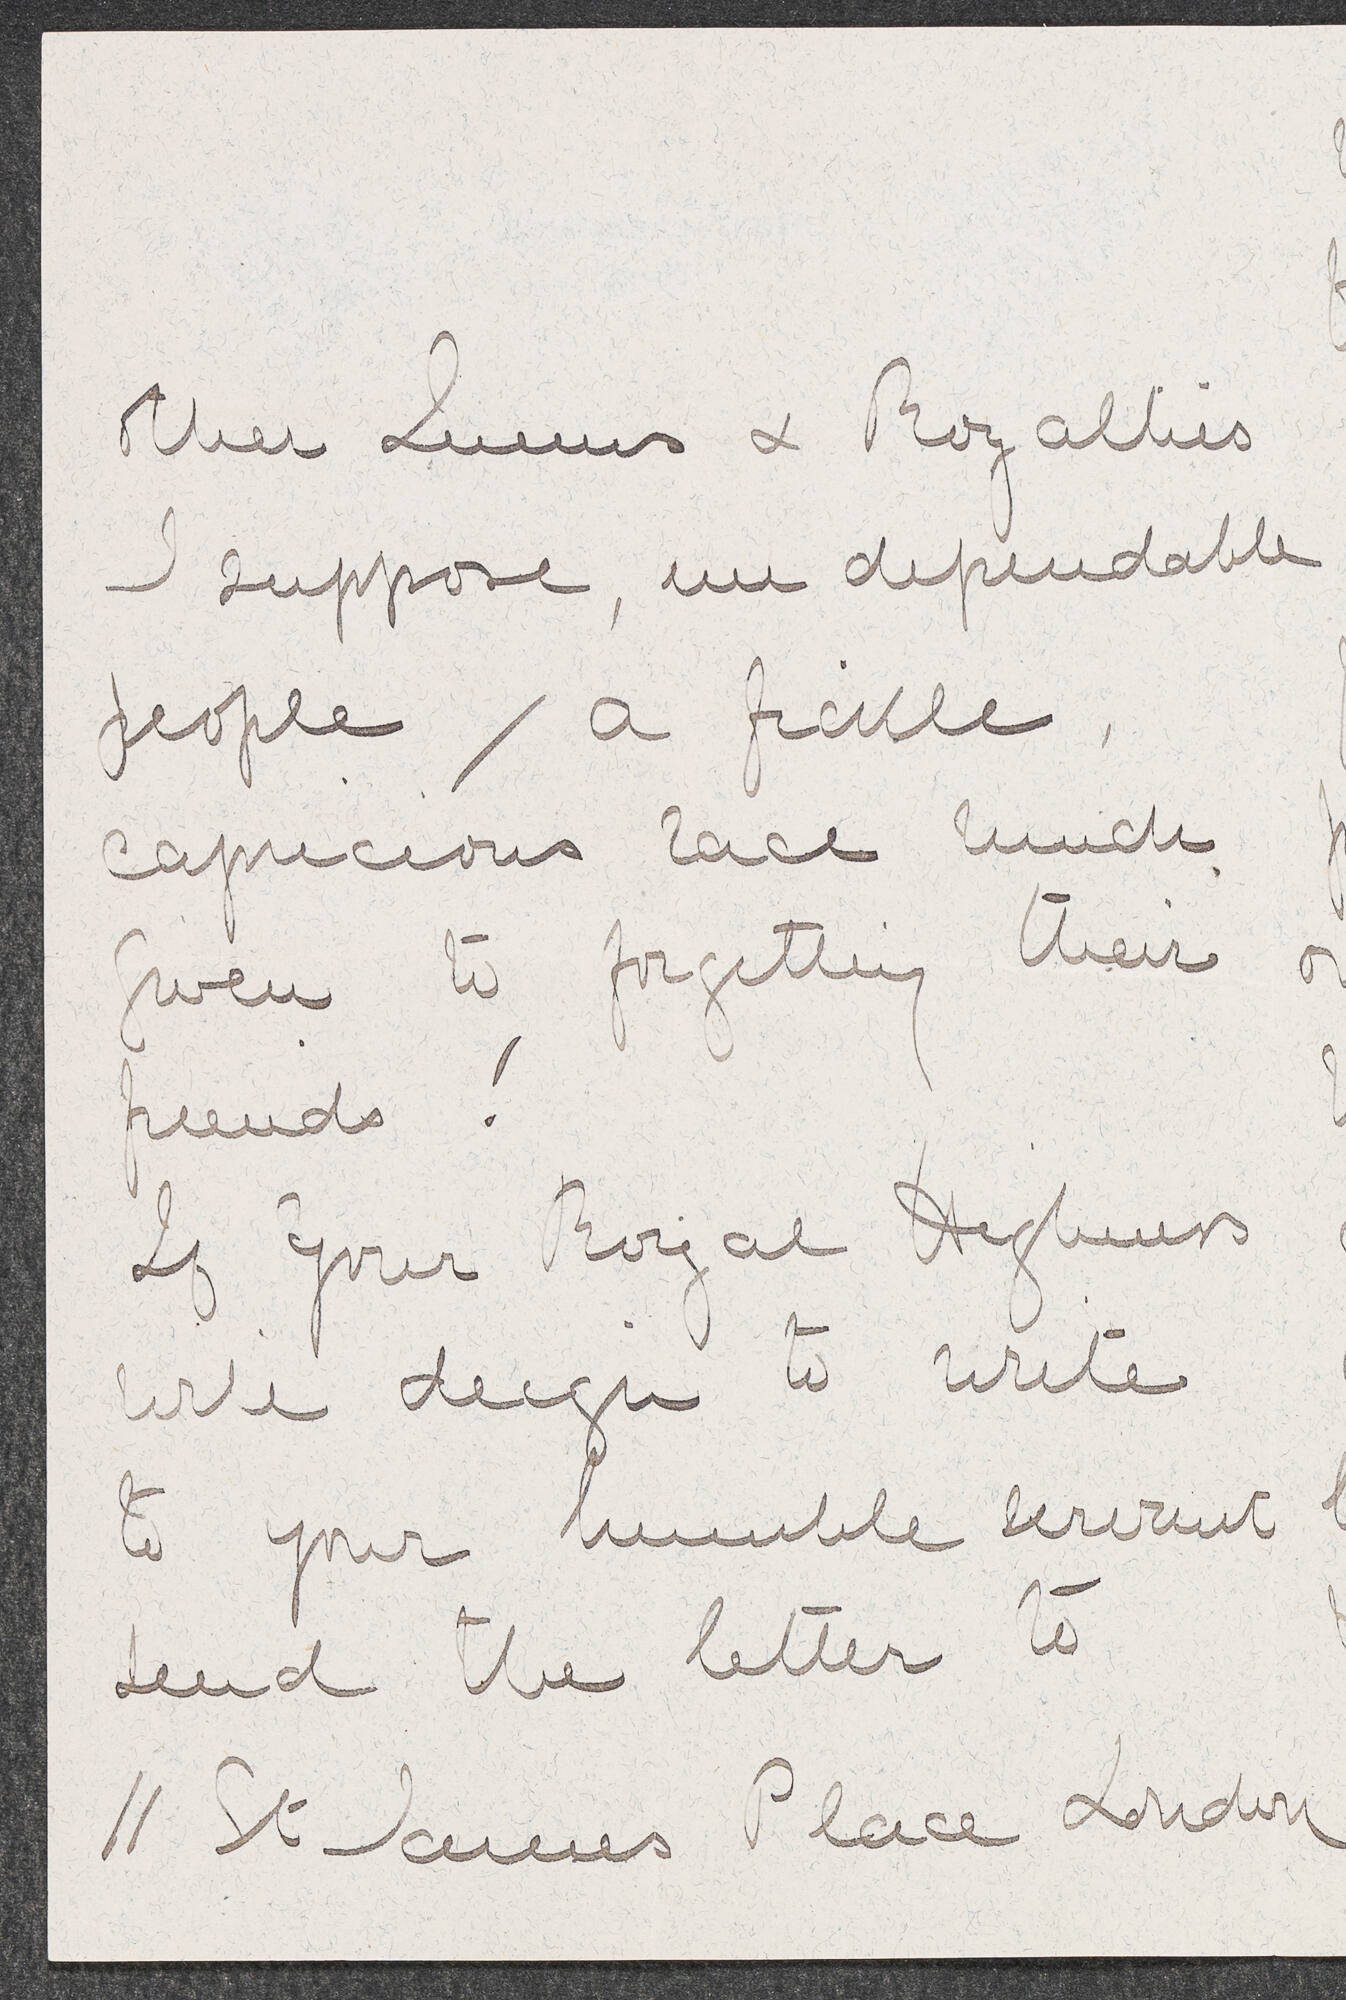 other Queens & Royalties
I suppose, un dependable
people / a fickle,
capricious race much
given to forgetting their
friends!
If Your Royal Highness
will deign to write
to your humble servant
send the letter to
11 St James Place London